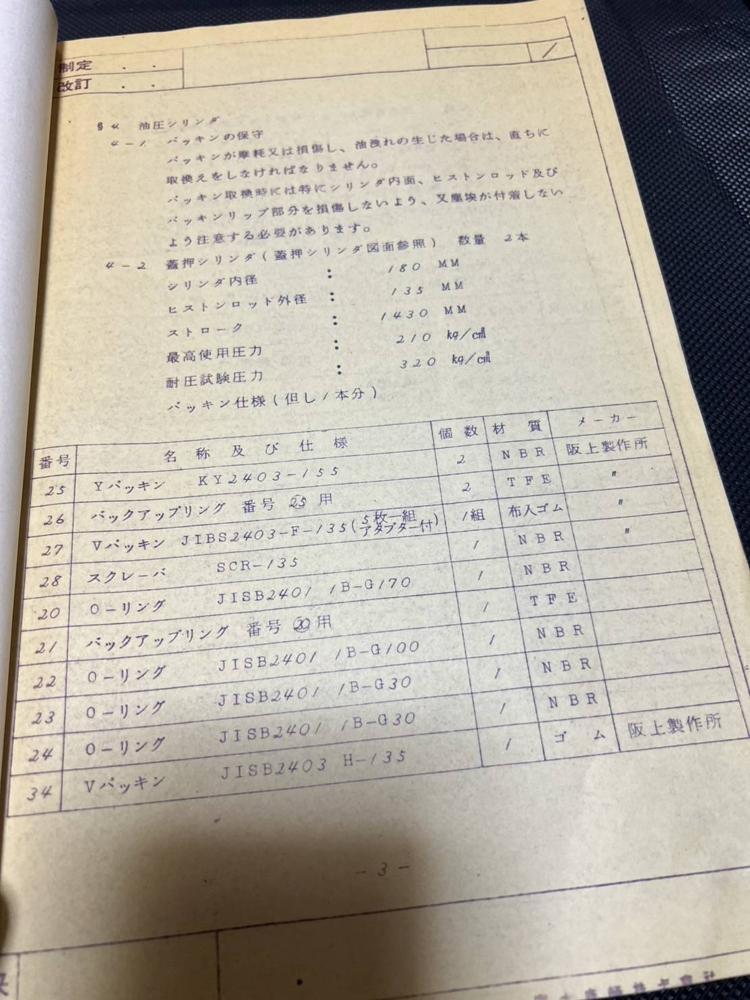 制定 ． ．
改訂 ． ．
/
§4 油圧シリンダ
4-1 パッキンの保守
パッキンが摩耗又は損傷し、油洩れの生じた場合は、直ちに
取換えをしなければなりません。
パッキン取換時には特にシリンダ内面、ヒストンロッド及び
パッキンリップ部分を損傷しないよう、又塵埃が付着しない
よう注意する必要があります。
4-2 蓋押シリンダ(蓋押シリンダ図面参照) 数量 2本
シリンダ内径 : 180 MM
ヒストンロッド外径 : 135 MM
ストローク : 1430 MM
最高使用圧力 : 210 kg/c㎡
耐圧試験圧力 : 320 kg/c㎡
パッキン仕様(但し1本分)
番号 名称及び仕様 個数 材質 メーカー
25 Yパッキン KY2403-155 2 NBR 阪上製作所
26 バックアップリング 番号 25 用 2 TFE 〃
27 Vパッキン JIBS2403-F-135(5枚一組 アダプター付) 1組 布入ゴム 〃
28 スクレーパ SCR-135 1 NBR 〃
20 O-リング JISB2401 1B-G170 1 NBR
21 バックアップリング 番号 20 用 1 TFE
22 O-リング JISB2401 1B-G100 1 NBR
23 O-リング JISB2401 1B-G30 1 NBR
24 O-リング JISB2401 1B-G30 1 NBR
34 Vパッキン JISB2403 H-135 1 ゴム 阪上製作所
-3-